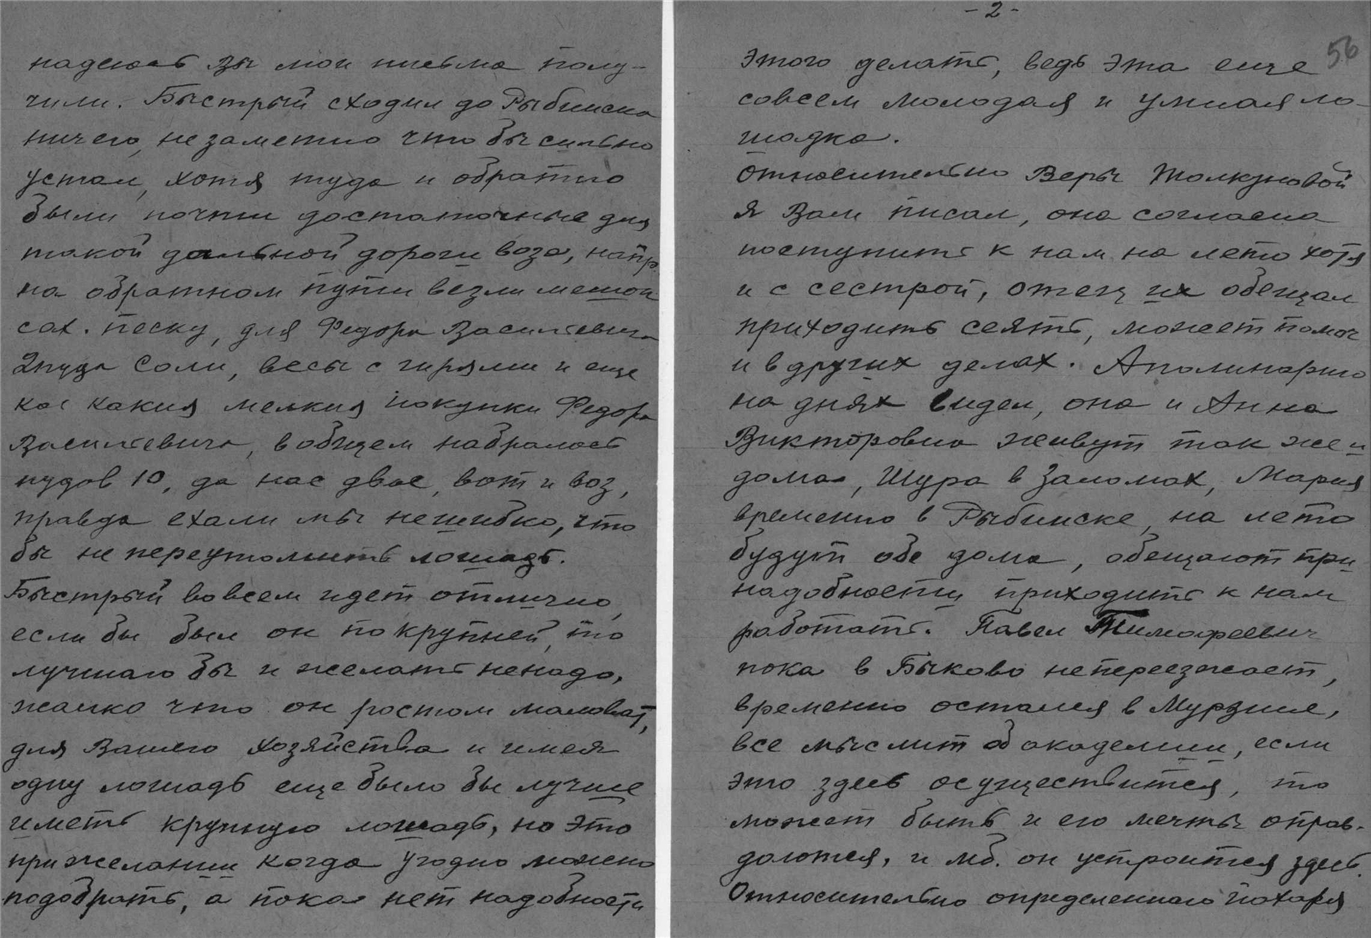 надеюсь вы мои письма полу-
чили. Быстрый сходил до Рыбинска
ничего, незаметно что бы сильно
устал, хотя туда и обратно
были почти достаточные для
такой дальной дороги воза, напр.
на обратном пути везли мешок
сах. песку, для Федора Васильевича
2 пуда соли, весы с гирями и еще
кое какия мелкия покупки Федора
Васильевича, в общем набралось
пудов 10, да нас двое, вот и воз,
правда ехали мы нешибко, что
бы не переутомить лошадь.
Быстрый во всем идет отлично,
если бы был он покрупней, то
лучшаго бы и желать ненадо,
жалко что он ростом маловат,
для Вашего хозяйства и имея
одну лошадь еще было бы лучше
иметь крупную лошадь, но это
при желании когда угодно можно
подобрать, а пока нет надобности
- 2 -
56
этого делать, ведь эта еще
совсем молодая и умная ло-
шадка.
Относительно Веры Толкуновой
я Вам писал, она согласна
поступить к нам на лето хотя
и с сестрой, отец их обещал
приходить сеять, может помоч
и в других делах. Аполинарию
на днях видел, она и Анна
Викторовна живут так же и
дома, Шура в Заломах, Мария
временно в Рыбинске, на лето
будут обе дома, обещают при
надобности приходить к нам
работать. Павел Тимофеевич
пока в Быково непереезжает,
временно остался в Мурзине,
все мыслит об академии, если
это здесь осуществится, то
может быть и его мечты оправ-
даются, и мб. он устроится здесь.
Относительно определеннаго пахаря